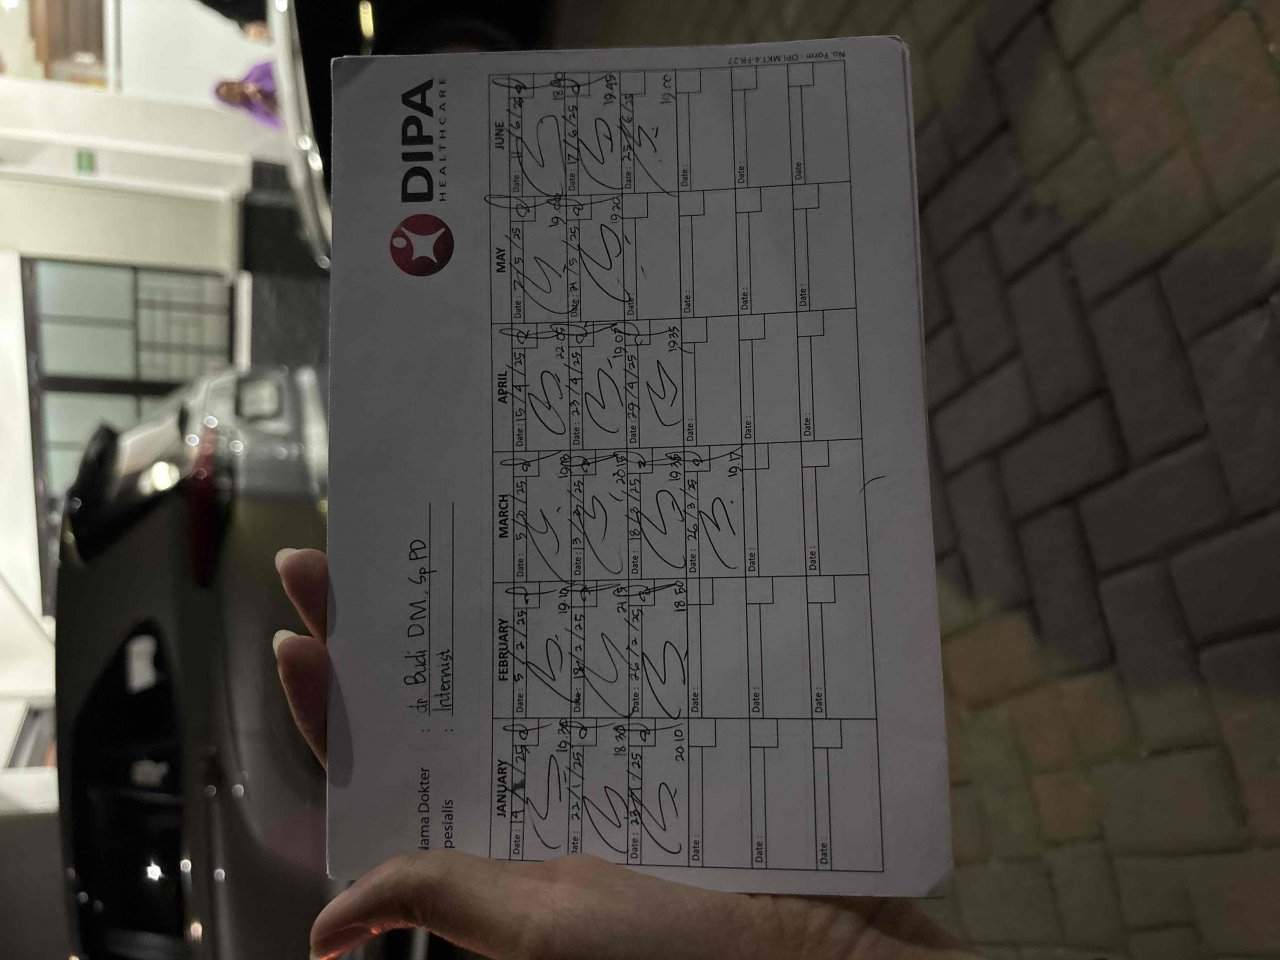 DIPA
HEALTHCARE
Nama Dokter : dr Budi DM, SpPD
Spesialis : Internist
JANUARY FEBRUARY MARCH APRIL MAY JUNE
Date : 5 / 2 / 25 Date : 5 / 3 / 25 Date : 15 / 4 / 25 Date : 7 / 5 / 25
19.30 19.10 19.18 22.05
Date : 22 / 1 / 25 Date : 18 / 2 / 25 Date : 13 / 3 / 25 Date : 23 / 4 / 25 Date : 21 / 5 / 25 Date : 17 / 6 / 25
18.30 20.15 19.07 19.20 19.45
Date : / 1 / 25 Date : 26 / 2 / 25 Date : 18 / 3 / 25 Date : 29 / 4 / 25 Date : Date : 25 / 6 / 25
20.10 18.50 19.35 19.35 19.00
Date : Date : Date : 26 / 3 / 25 Date : Date : Date :
19.17
Date : Date : Date : Date : Date : Date :
Date : Date : Date : Date : Date : Date :
No. Form : DPI.MKT.4-FR.27